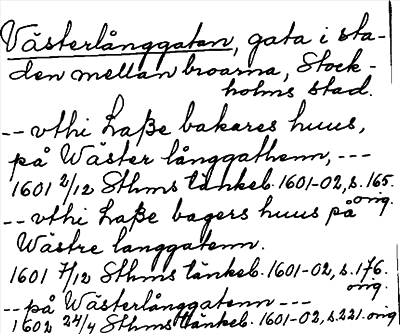 Västerlånggatan, gata i sta-
den mellan broarna, Stock-
holms stad.
-- vthi Laße bakares huus,
på Wäster långgathenn, ---
1601 2/12 Sthms tänkeb. 1601-02, s. 165.
orig.
-- vthi Laße bagers huus på
Wästre langgatenn.
1601 7/12 Sthms tänkeb. 1601-02, s. 176.
orig.
-- på Wästerlånggattenn ---
1602 24/4 Sthms tänkeb. 1601-02, s. 221. orig